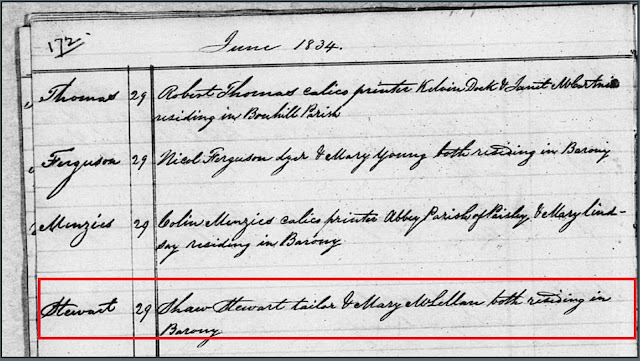 172.
June 1834.
Thomas 29 Robert Thomas calico printer Kelvin Dock & Janet McCartnie
residing in Bonhill Parish
Ferguson 29 Nicol Ferguson dyer & Mary Young both residing in Barony
Menzies 29 Colin Menzies calico printer Abbey Parish of Paisley, & Mary Lind-
say residing in Barony
Stewart 29 Shaw Stewart tailor & Mary McLellan both residing in
Barony